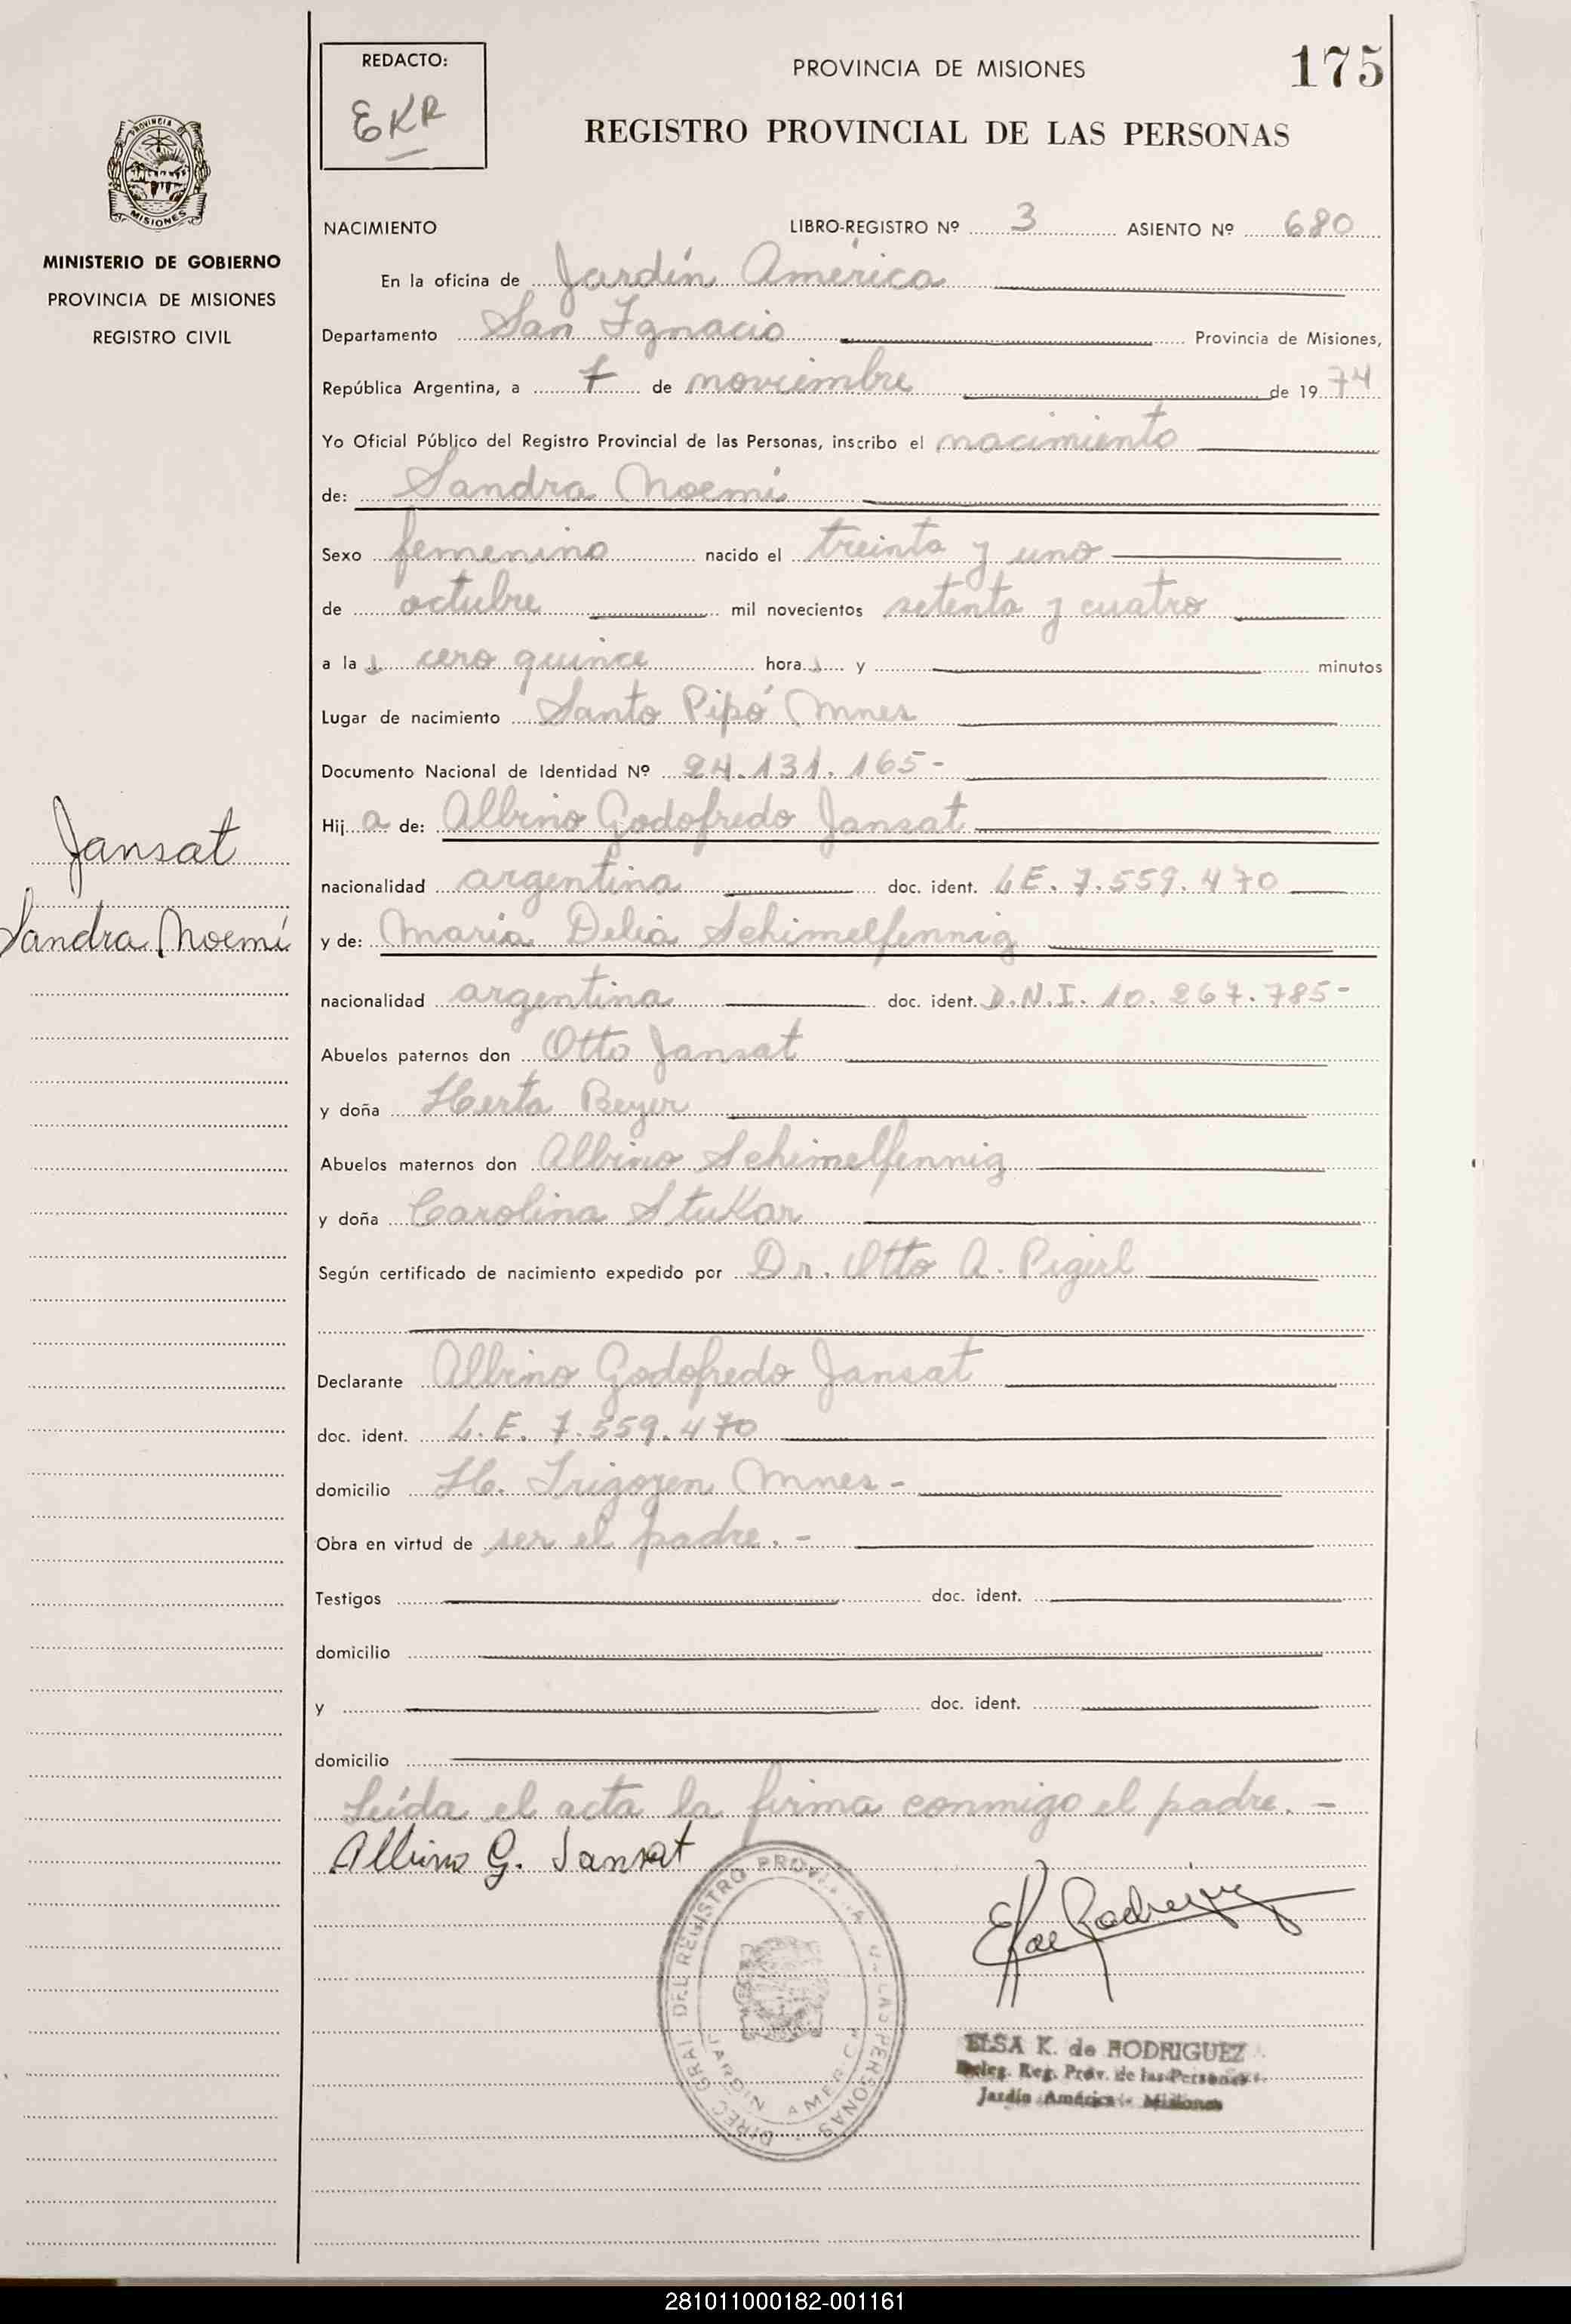 REDACTO:
EKR
PROVINCIA DE MISIONES
175
REGISTRO PROVINCIAL DE LAS PERSONAS
PROVINCIA DE
MISIONES
MINISTERIO DE GOBIERNO
PROVINCIA DE MISIONES
REGISTRO CIVIL
NACIMIENTO LIBRO-REGISTRO Nº 3 ASIENTO Nº 680
En la oficina de Jardín América
Departamento San Ignacio Provincia de Misiones,
República Argentina, a 7 de noviembre de 19 74
Yo Oficial Público del Registro Provincial de las Personas, inscribo el nacimiento
de: Sandra Noemi
Sexo femenino nacido el treinta y uno
de octubre mil novecientos setenta y cuatro
a la s cero quince hora s y minutos
Lugar de nacimiento Santo Pipó Mnes
Documento Nacional de Identidad Nº 24.131.165-
Hij a de: Albino Godofredo Jansat
nacionalidad argentina doc. ident. L.E. 7.559.470
Jansat
Sandra Noemí
y de: Maria Delia Schimelfennig
nacionalidad argentina doc. ident. D.N.I. 10.267.785-
Abuelos paternos don Otto Jansat
y doña Herta Beyer
Abuelos maternos don Albino Schimelfennig
y doña Carolina Stukar
Según certificado de nacimiento expedido por Dr. Otto A. Pigerl
Declarante Albino Godofredo Jansat
doc. ident. L.E. 7.559.470
domicilio H. Irigoyen Mnes-
Obra en virtud de ser el padre.-
Testigos doc. ident.
domicilio
y doc. ident.
domicilio
Leída el acta la firma conmigo el padre.-
Albino G. Jansat
DIREC. GRAL. DEL REGISTRO PROVINCIAL DE LAS PERSONAS
JARDIN AMERICA
EK de Rodriguez
ELSA K. de RODRIGUEZ
Deleg. Reg. Prov. de las Personas
Jardín América - Misiones
281011000182-001161